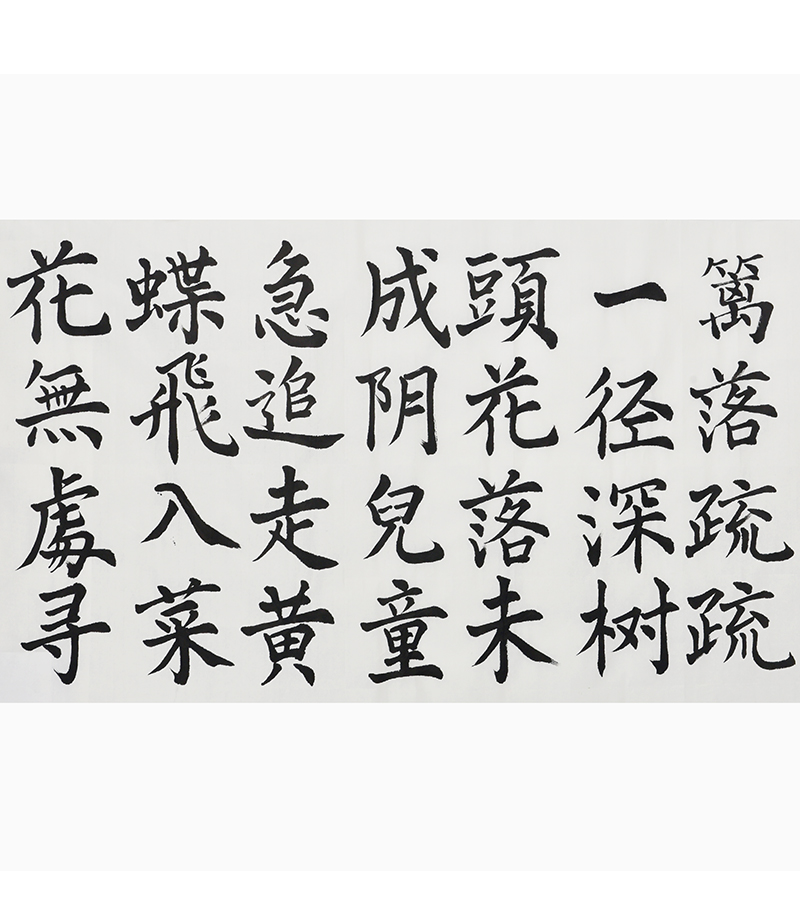 篱落疏疏
一径深树
頭花落未
成阴兒童
急追走黄
蝶飛入菜
花無處寻